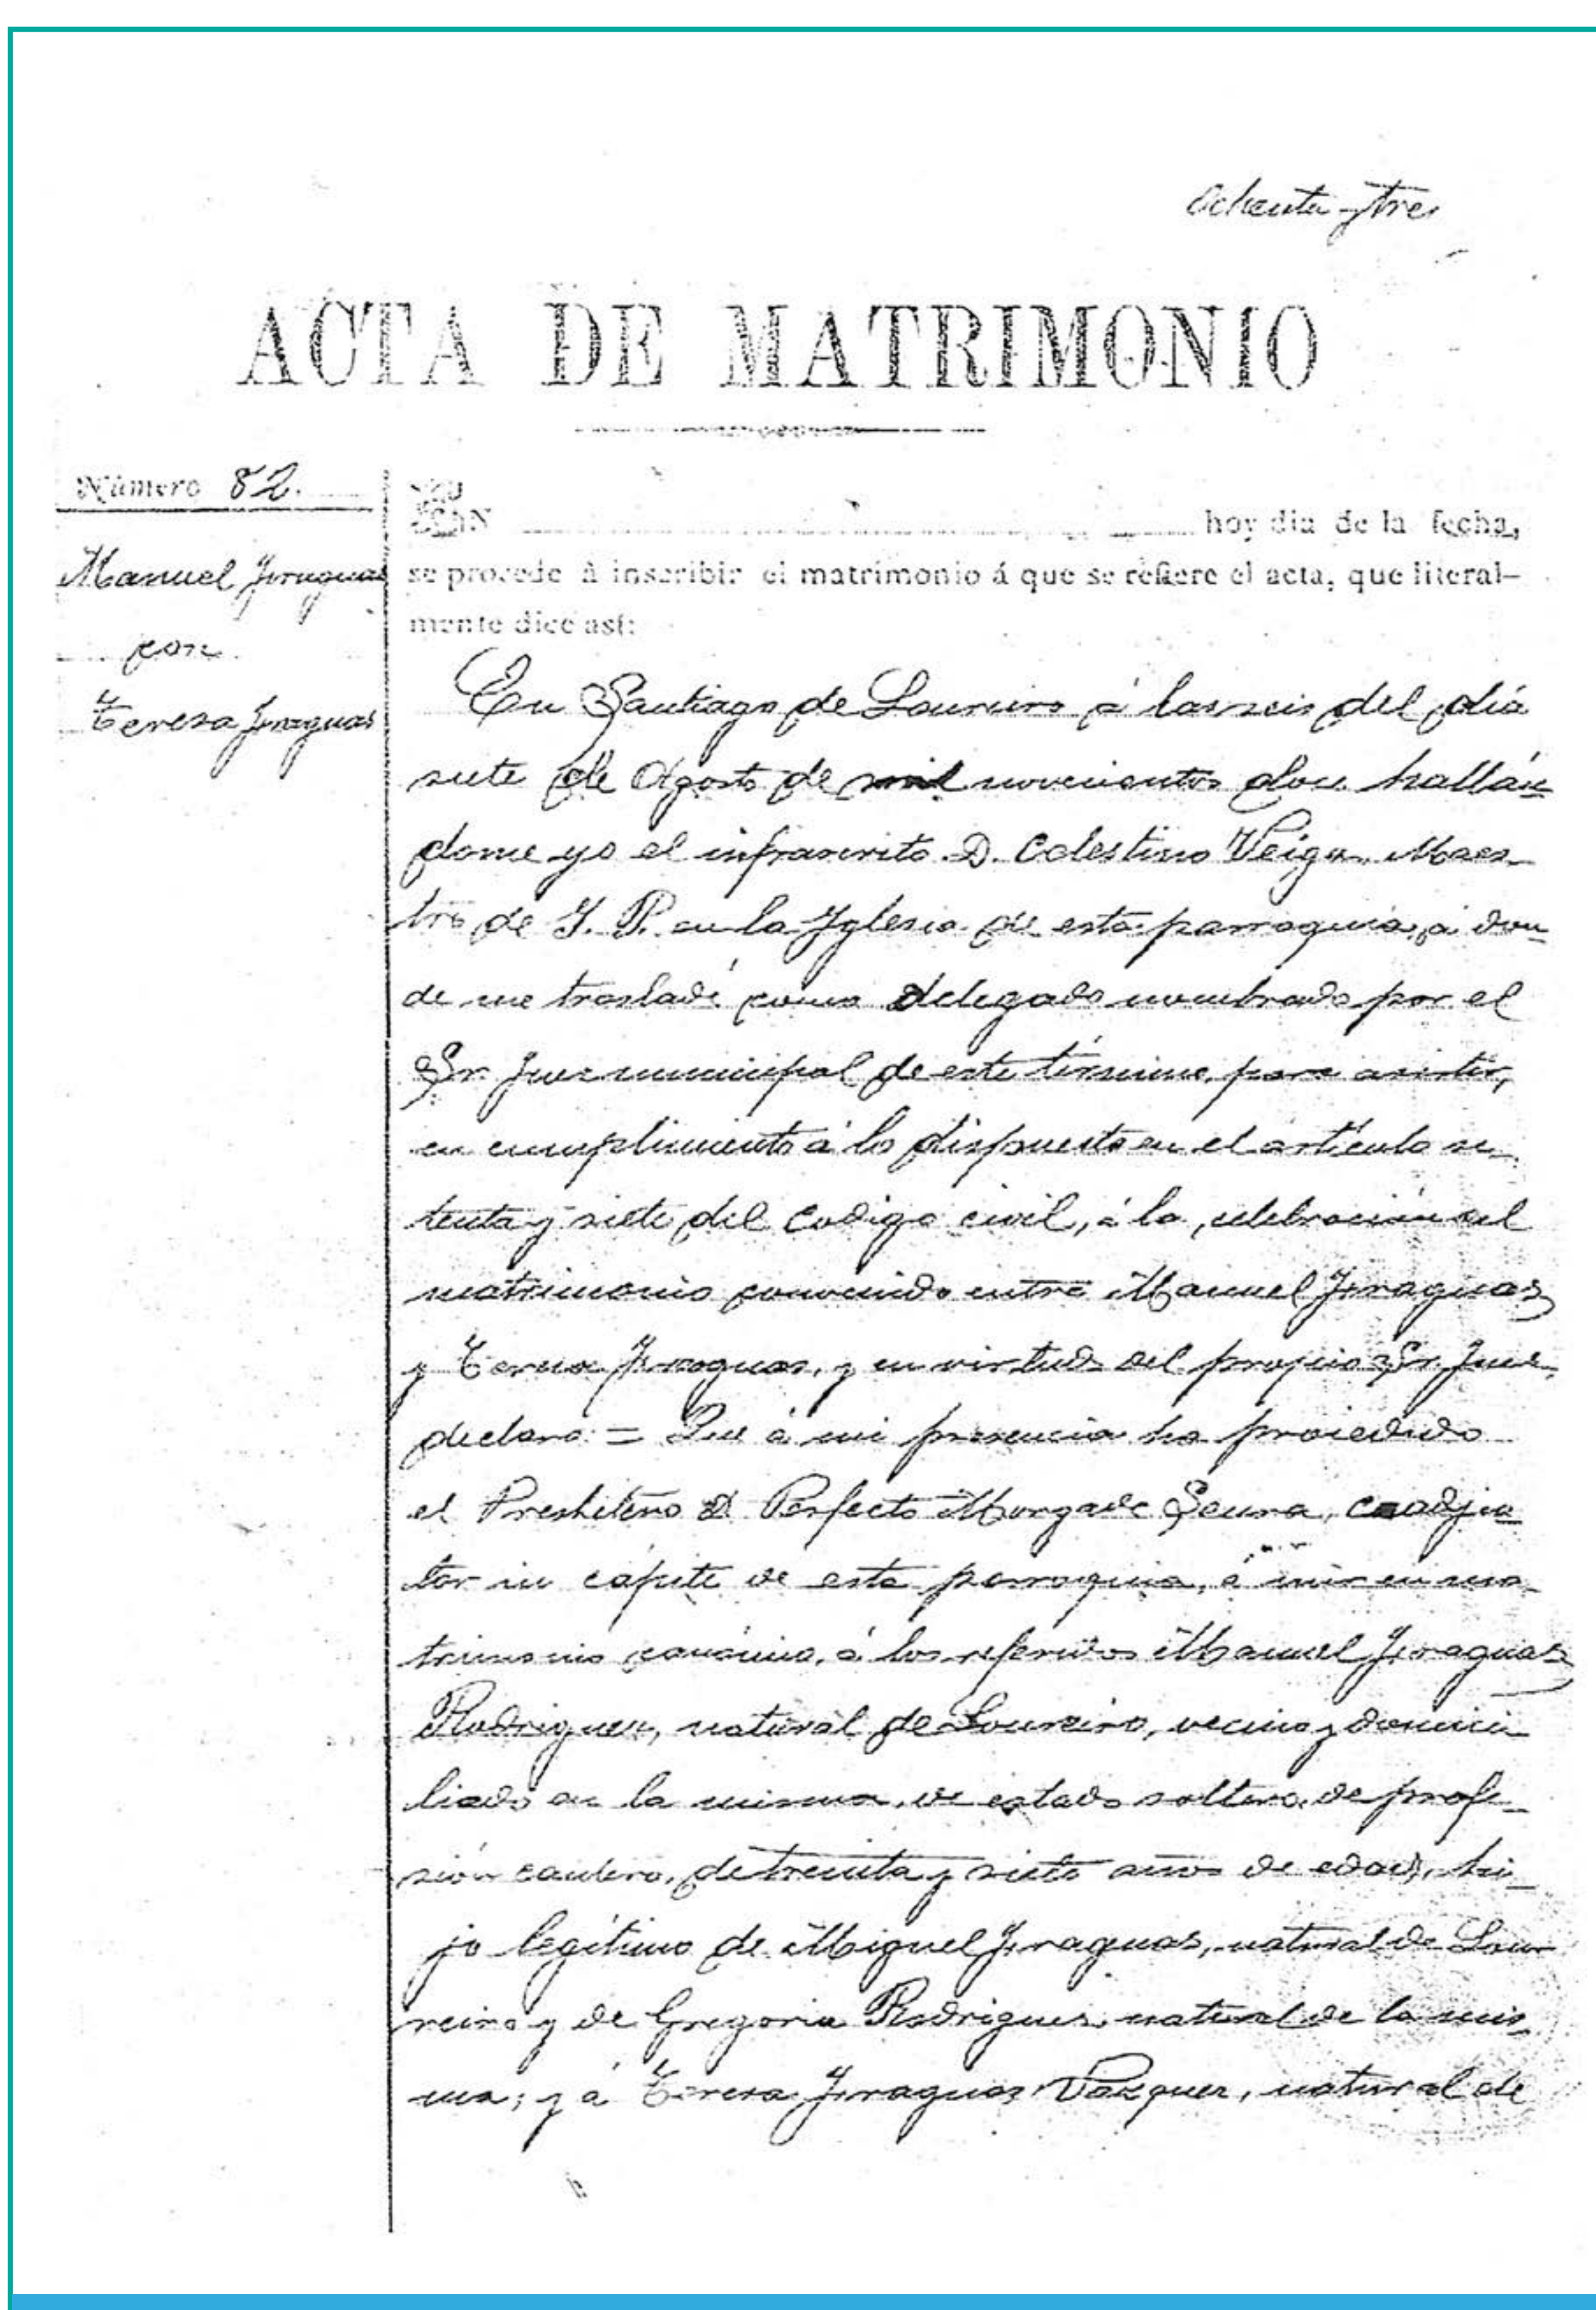 Ochenta y tres
ACTA DE MATRIMONIO
Número 82.
Manuel Juraguas
con
Teresa Juraguas
EN hoy dia de la fecha,
se procede á inscribir el matrimonio á que se refiere el acta, que literal-
mente dice así:
En Santiago de Loureiro á las seis del día
siete de Agosto de mil novecientos doce hallán
dome yo el infrascrito D. Celestino Veiga Maes-
tro de I. P. en la Iglesia de esta parroquia, á don
de me trasladé como delegado nombrado por el
Sr. Juez municipal de este término, para asistir,
en cumplimiento á lo dispuesto en el artículo se-
tenta y siete del Codigo civil, á la celebración del
matrimonio convenido entre Manuel Juraguas
y Teresa Juraguas, y en virtud del propio Sr. Juez,
declaro: = Que á mi presencia ha procedido
el Presbítero D. Perfecto Morgade Seura, coadju
tor in cápite de esta parroquia, á unir en ma-
trimonio canónico, á los referidos Manuel Juraguas
Rodriguez, natural de Loureiro, vecino y domici
liado en la misma, de estado soltero, de profe-
sión cantero, de treinta y siete años de edad, hi-
jo legítimo de Miguel Juraguas, natural de Lou
reiro y de Gregoria Rodriguez natural de la mis-
ma; y á Teresa Juraguas Vazquez, natural de